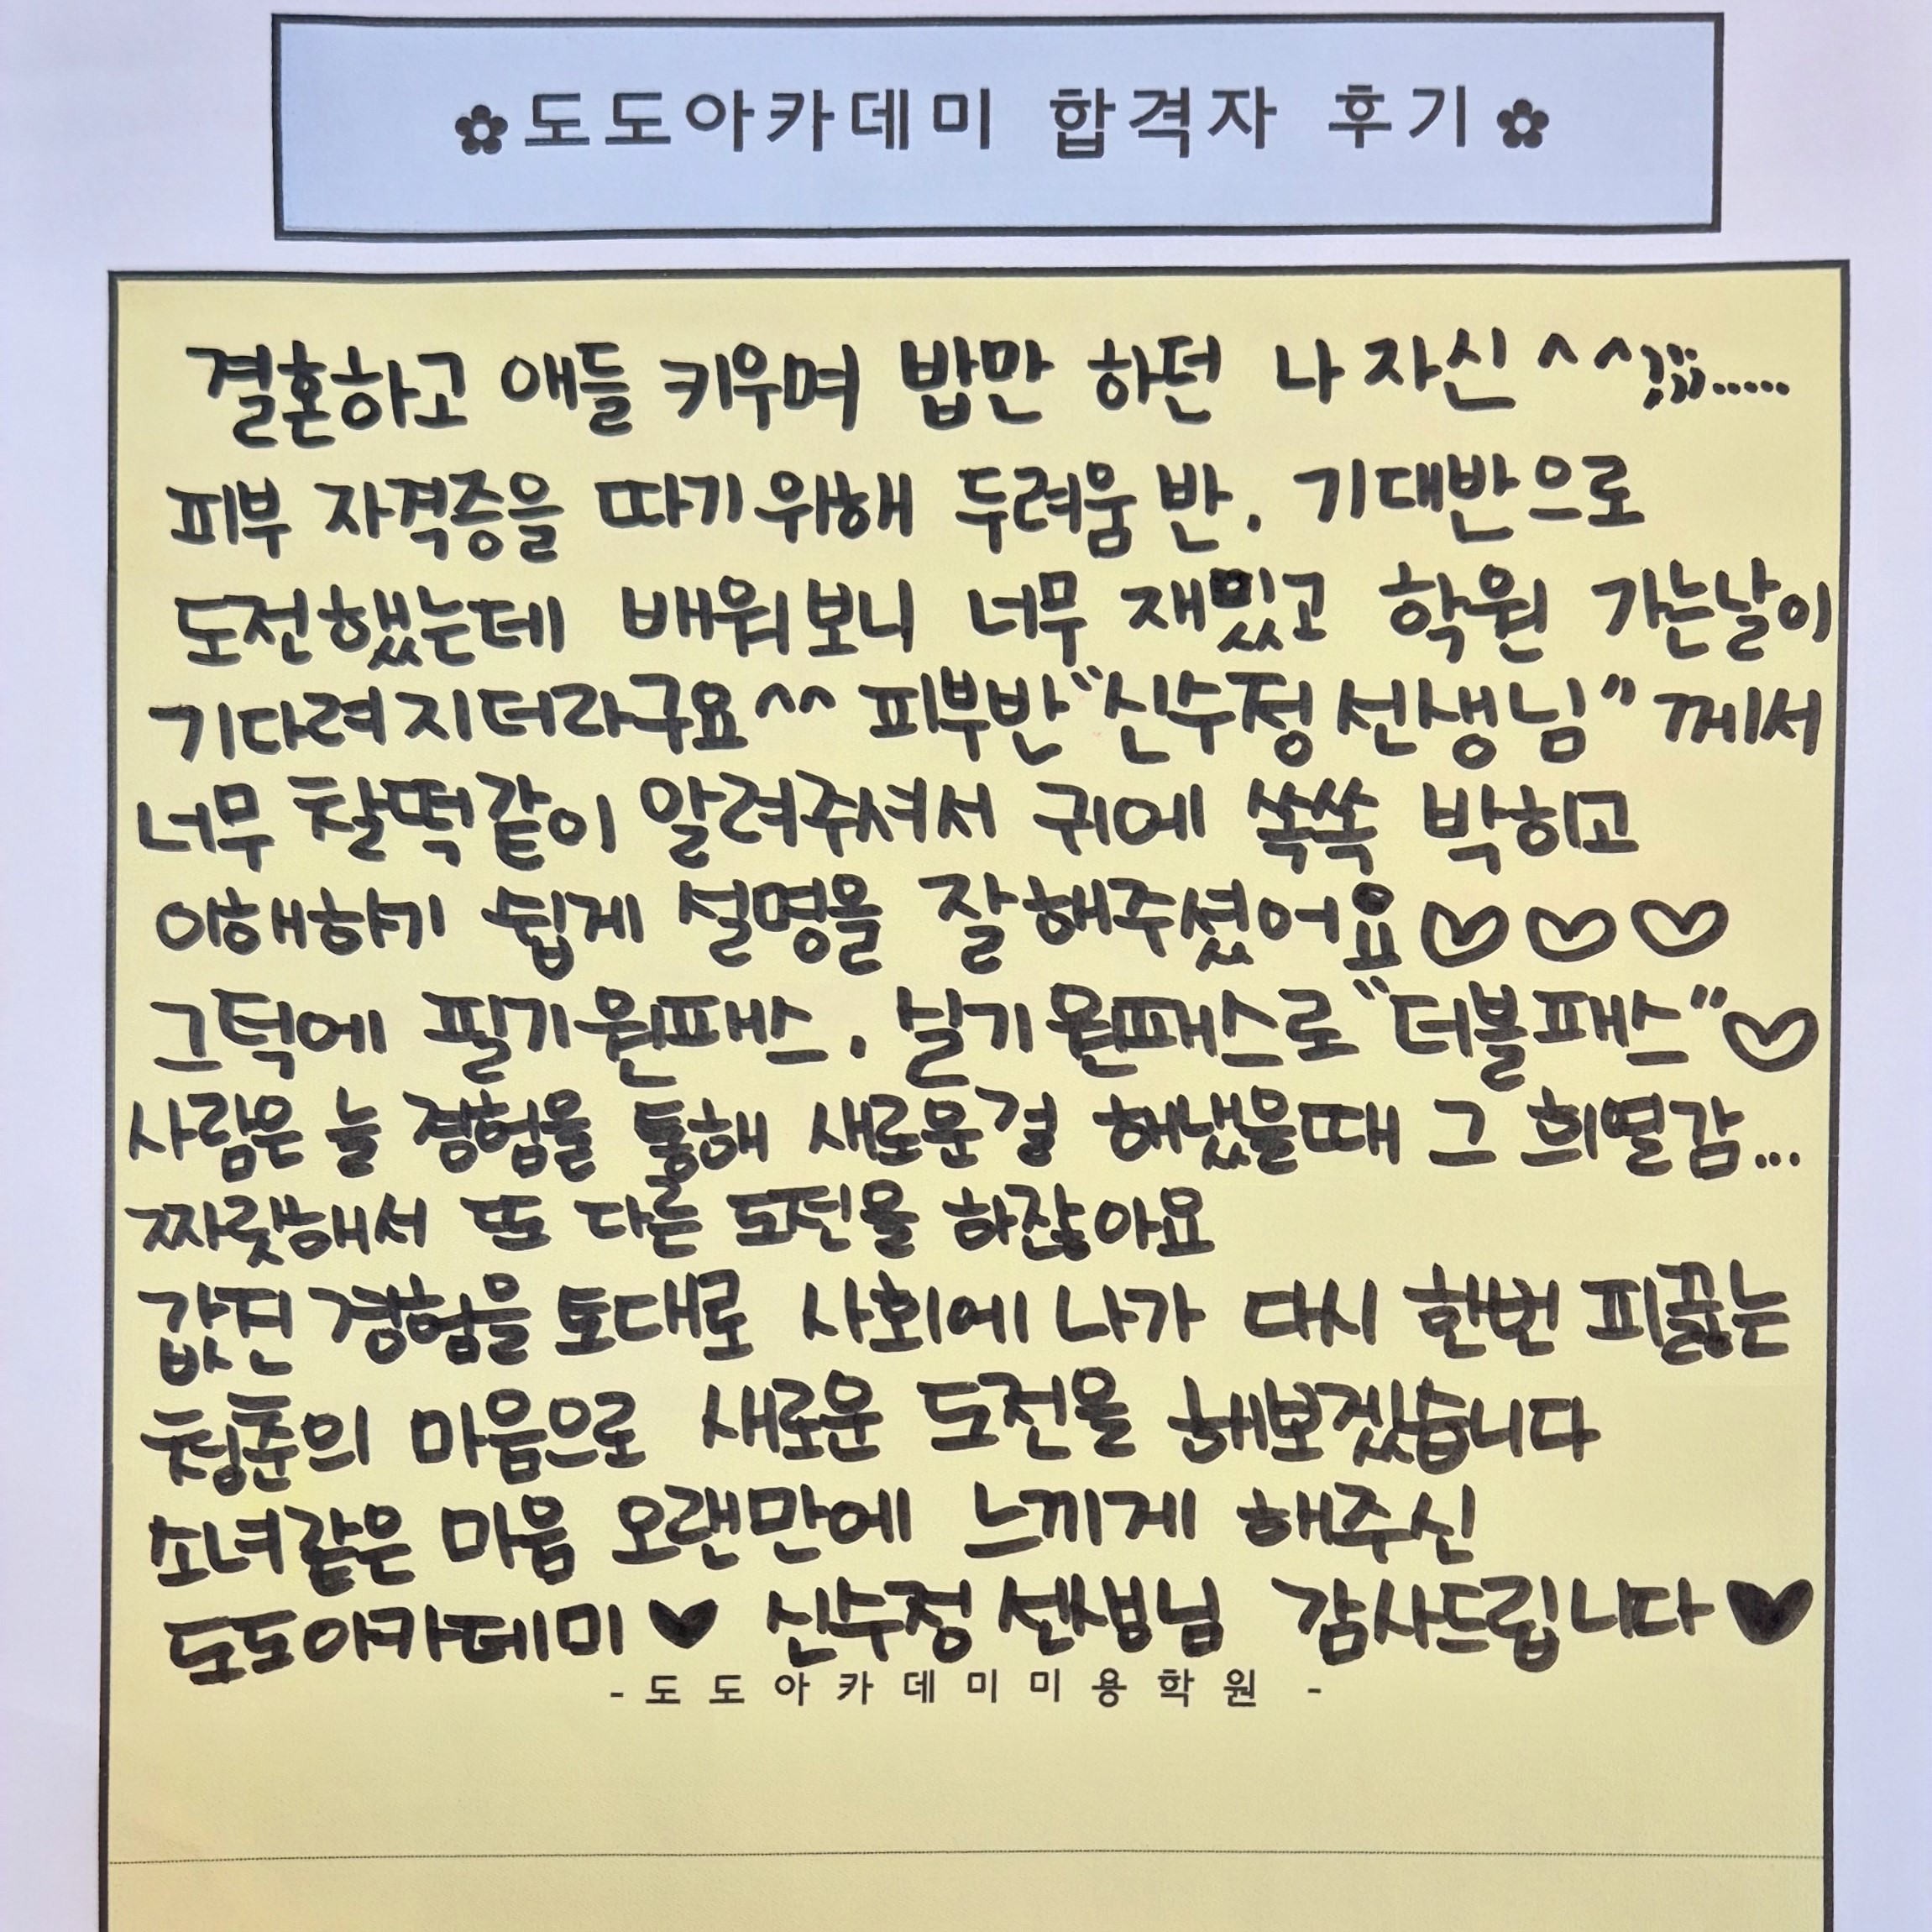 ✿도도아카데미 합격자 후기✿
결혼하고 애들 키우며 밥만 하던 나 자신^^;;;.....
피부 자격증을 따기위해 두려움 반, 기대반으로
도전했는데 배워보니 너무 재밌고 학원 가는날이
기다려지더라구요^^ 피부반"신수정 선생님"께서
너무 찰떡같이 알려주셔서 귀에 쏙쏙 박히고
이해하기 쉽게 설명을 잘해주셨어요♡♡♡
그덕에 필기원패스, 실기원패스로 "더블패스"♡
사람은 늘 경험을 통해 새로운걸 해냈을때 그 희열감...
짜릿해서 또 다른 도전을 하잖아요
값진 경험을 토대로 사회에 나가 다시 한번 피끓는
청춘의 마음으로 새로운 도전을 해보겠습니다
소녀같은 마음 오랜만에 느끼게 해주신
도도아카데미♥ 신수정 선생님 감사드립니다♥
-도도아카데미미용학원 -